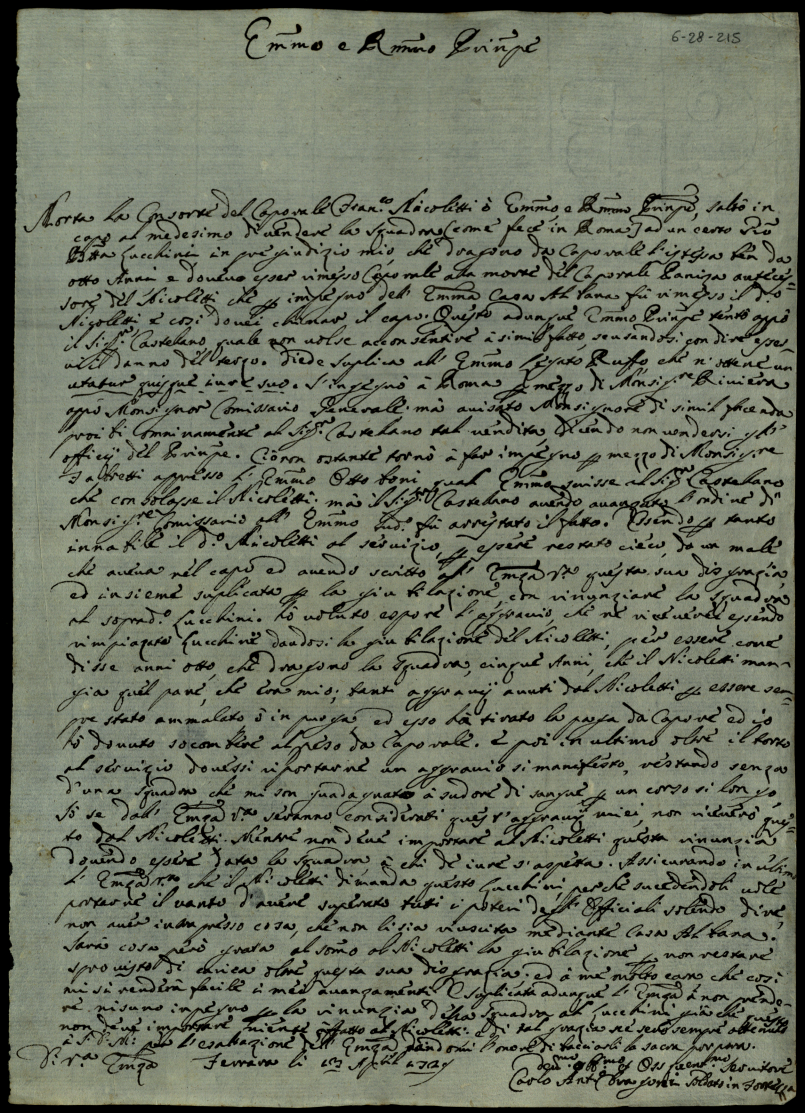 6-28-215
Em̃mo e Rm̃mo Principe
Morta la Consorte del Caporale Fran.co Nicoletti ò Em̃mo e Rm̃mo Principe, saltò in
capo al medesimo di vendere la Squadra (come fece in Roma) ad un certo
Lucchini in pregiudizio mio, che dragono da Caporale l'istessa ben da
otto Anni e dovevo esser rimesso Caporale alla morte del Caporale anteces=
sore del Nicoletti che p impegno dell' Em̃ma Casa Albana fù rimesso il d.o
Nicoletti e così dovei chinar il capo. Questo adunque Em̃mo Principe tentò appò
il Sig.r Castelano quale non volse acconsentire à simil fatto scusandosi con dire esser=
vi il danno del terzo. Diede suplica all' Em̃mo Legato Ruffo, che n'ottene un
utatur quisque iure suo. S'ingegnò à Roma p mezzo di Monsig.re Riviera
appò Monsignor Comissario Generale mà avisato Monsignore di simil facenda
proibì onninamente al Sig.r Castelano tal vendita dicendo non vendersi gl'
officij del Principe. Ciò non ostante tornò à far impegno p mezzo di Monsig.re
appresso l' Em̃mo Ottoboni qual Em̃mo scrisse al Sig.r Castelano
che consolasse il Nicoletti: mà il Sig.r Castelano avendo avanzato l'ordine di
Monsig.re Comissario all' Em̃mo fù arrestato il fatto. Essendo p tanto
innabile il d.o Nicoletti al servizio, p essere restato cieco, da un male
che aveva nel capo ed avendo scritto all' Emza Vra questa sua disgrazia
ed insieme suplicata p la giubilazione, con rinunziare la squadra
al soprad.o Lucchini. Hò voluto esporre l'aggravio, che ne riceverei essendo
rimpiazato Lucchini dandosi la giubilazione del Nicoletti, per essere come
disse anni otto, che dragono la Squadra, cinque Anni, che il Nicoletti man=
gia quel pane, che era mio; tanti aggravij avuti dal Nicoletti p essere sem=
pre stato ammalato ò in purga ed esso hà tirato la paga da Caporale ed io
hò dovuto socombere al peso da Caporale. E poi in ultimo oltre il torto
al servizio dovessi riportarne un aggravio si manifesto, restando senza
d'una squadra che mi son guadagnato à sudore di sangue p un corso si longo,
Sò se dall' Emza Vra seranno considerati quest'aggravij miei, non riceverò ques=
to dal Nicoletti. Mentre non deve importare al Nicoletti questa rinunzia
dovendo essere data la Squadra à chi de iure s'aspetta. Assicurando in ultimo
l' Emza Vra che il Nicoletti dimanda questo Lucchini, perche sucedendoli vole
portarne il vanto d'avere superato tutti i poteri degl' Officiali solendo dire,
non aver intrapresso cosa, che non li sia riuscita mediante Casa Albana.
Sarà cosa però grata al somo al Nicoletti la giubilazione p non restare
sprovisto di carica oltre questa sua disgrazia: ed à me molto caro che così
mi si renderà facile i miei avanzamenti. Suplicata adunque l' Emza à non prende=
re nisuno impegno p la rinunzia della Squadra al Lucchini già che questo
non deve importare niente affatto al Nicoletti. e di tal grazia ne serò sempre
per l'esaltazione dell' Emza dandomi l'onore di bacciarli la sacra porpora.
Di Vra Emza Ferrara li 13 Aprile
Servitore
Carlo Ant.o Dragoni Soldato in Fortezza